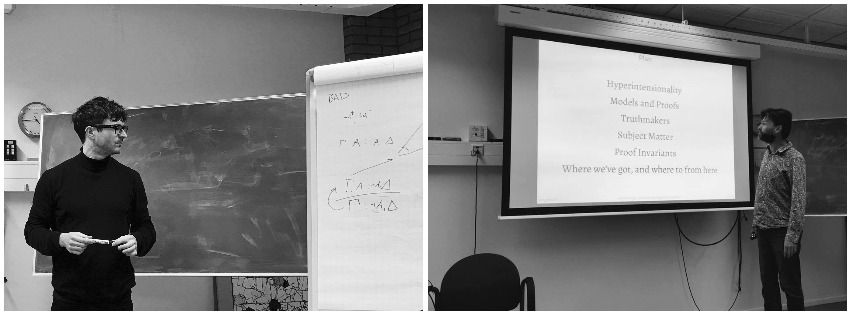 BAD
Plan
Hyperintensionality
Models and Proofs
Truthmakers
Subject Matter
Proof Invariants
Where we've got, and where to from here